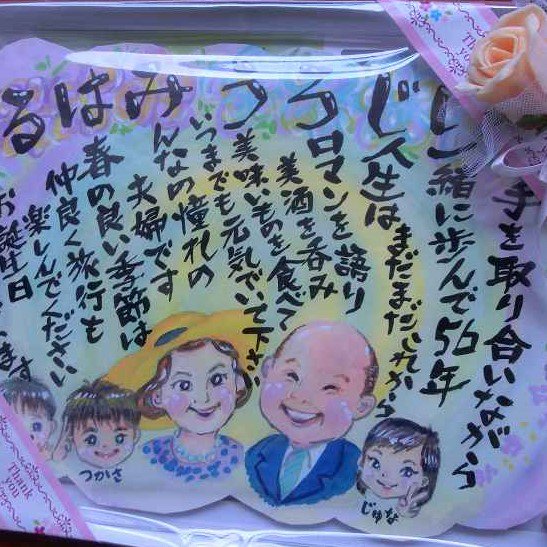 じろうみはる
手を取り合いながら
一緒に歩んで56年
人生は
まだまだこれから
ロマンを語り
美酒を呑み
美味いものを食べて
いつまでも元気でいて下さい
みんなの憧れの
夫婦です
春の良い季節は
仲良く旅行も
楽しんでください
お誕生日
ます
つかさ
じゅな
Thank you
Thank you